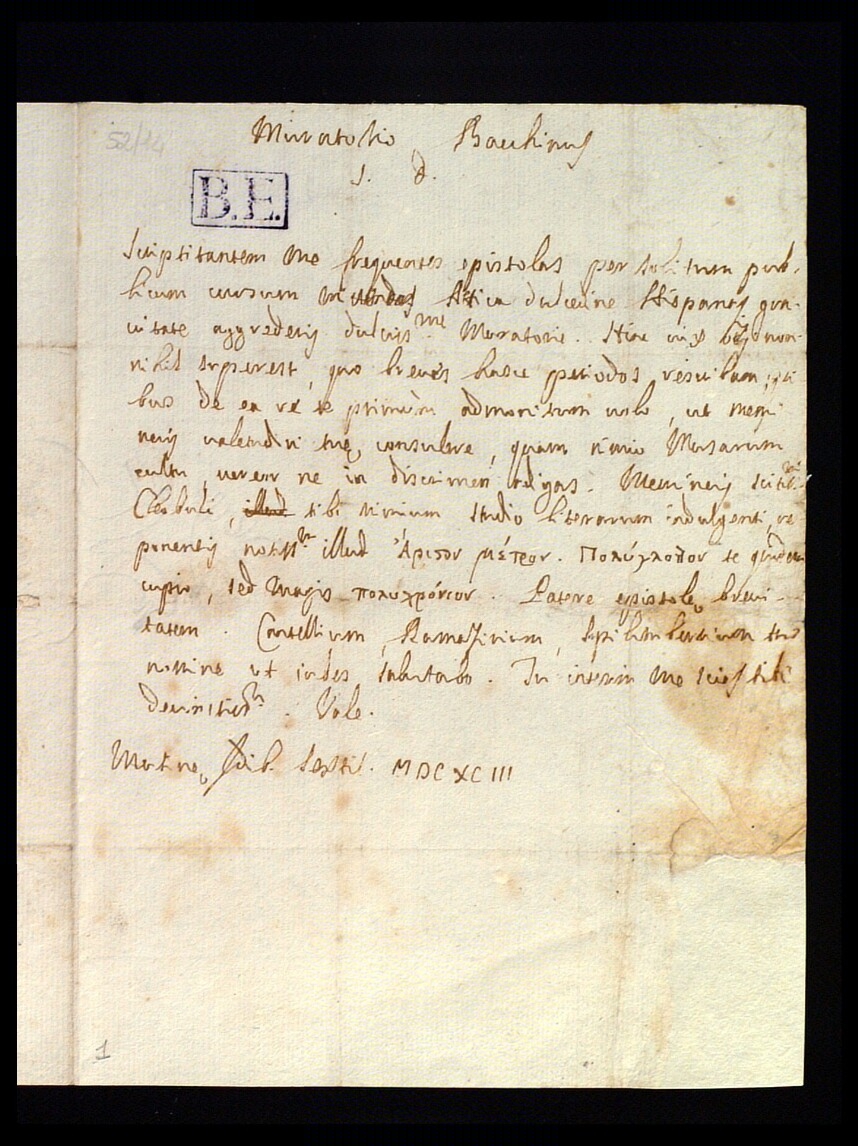 52/14
Muratorio Bacchinus
S. D.
B.E.
Scriptitantem me frequentes epistolas per solitum pub-
licum cursum Attica dulcedine Hispanos gra-
vitate aggrederis dulciss.me Muratori. Hinc
nihil superest, quo breves hasce periodos rescribam,
bus de ea re te primum admonitum volo, ut memi
neris valetudini tuę consulere, quam nimio Musarum
cultu, vereor ne in discrimen adigas. Memineris
Cleobuli, illud tibi nimium studio literarum indulgenti, re
ponentis illud Ἄριστον μέτρον. Πολύγλοττον te quidem
cupio, sed magis πολυχρόνιον. Patere epistolę brevi-
tatem. Cantellium, Ramazzinum, tuo
nomine ut iubes salutabo. Tu interim me scias tibi
devinctiss.m. Vale.
Mutinę, Sextil. MDCXCIII
1